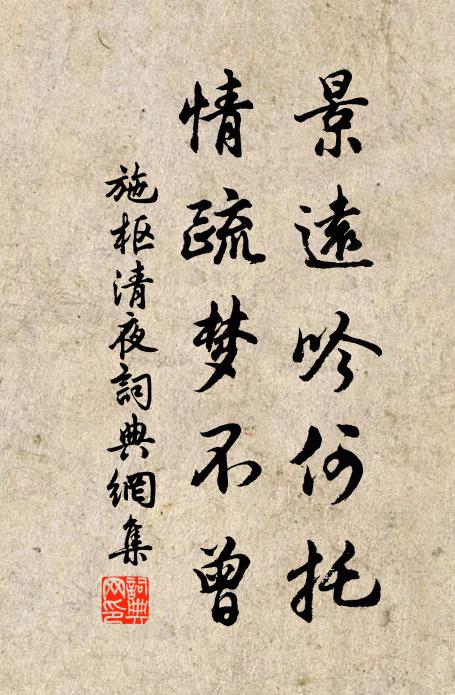 景遠吟何托
情疏梦不曾
施枢清夜詞典網集
詞典网印